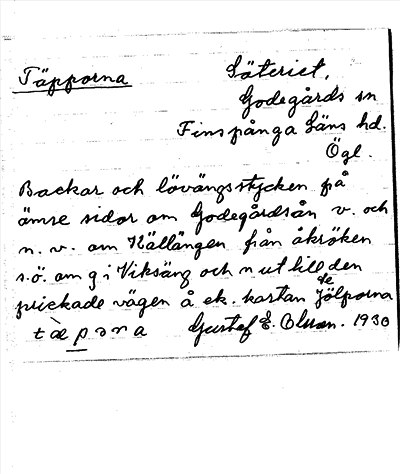 Täpporna
Säteriet,
Godegårds sn
Finspånga Läns hd.
Ögl.
Backar och lövängsstycken på
ömse sidor om Godegårdsån v. och
n. v. om Källängen från åkröken
s.ö. om g i Viksäng och n ut till den
prickade vägen å ek. kartan
de
Jölporna
tæpəna Gustaf E. Olsson. 1930